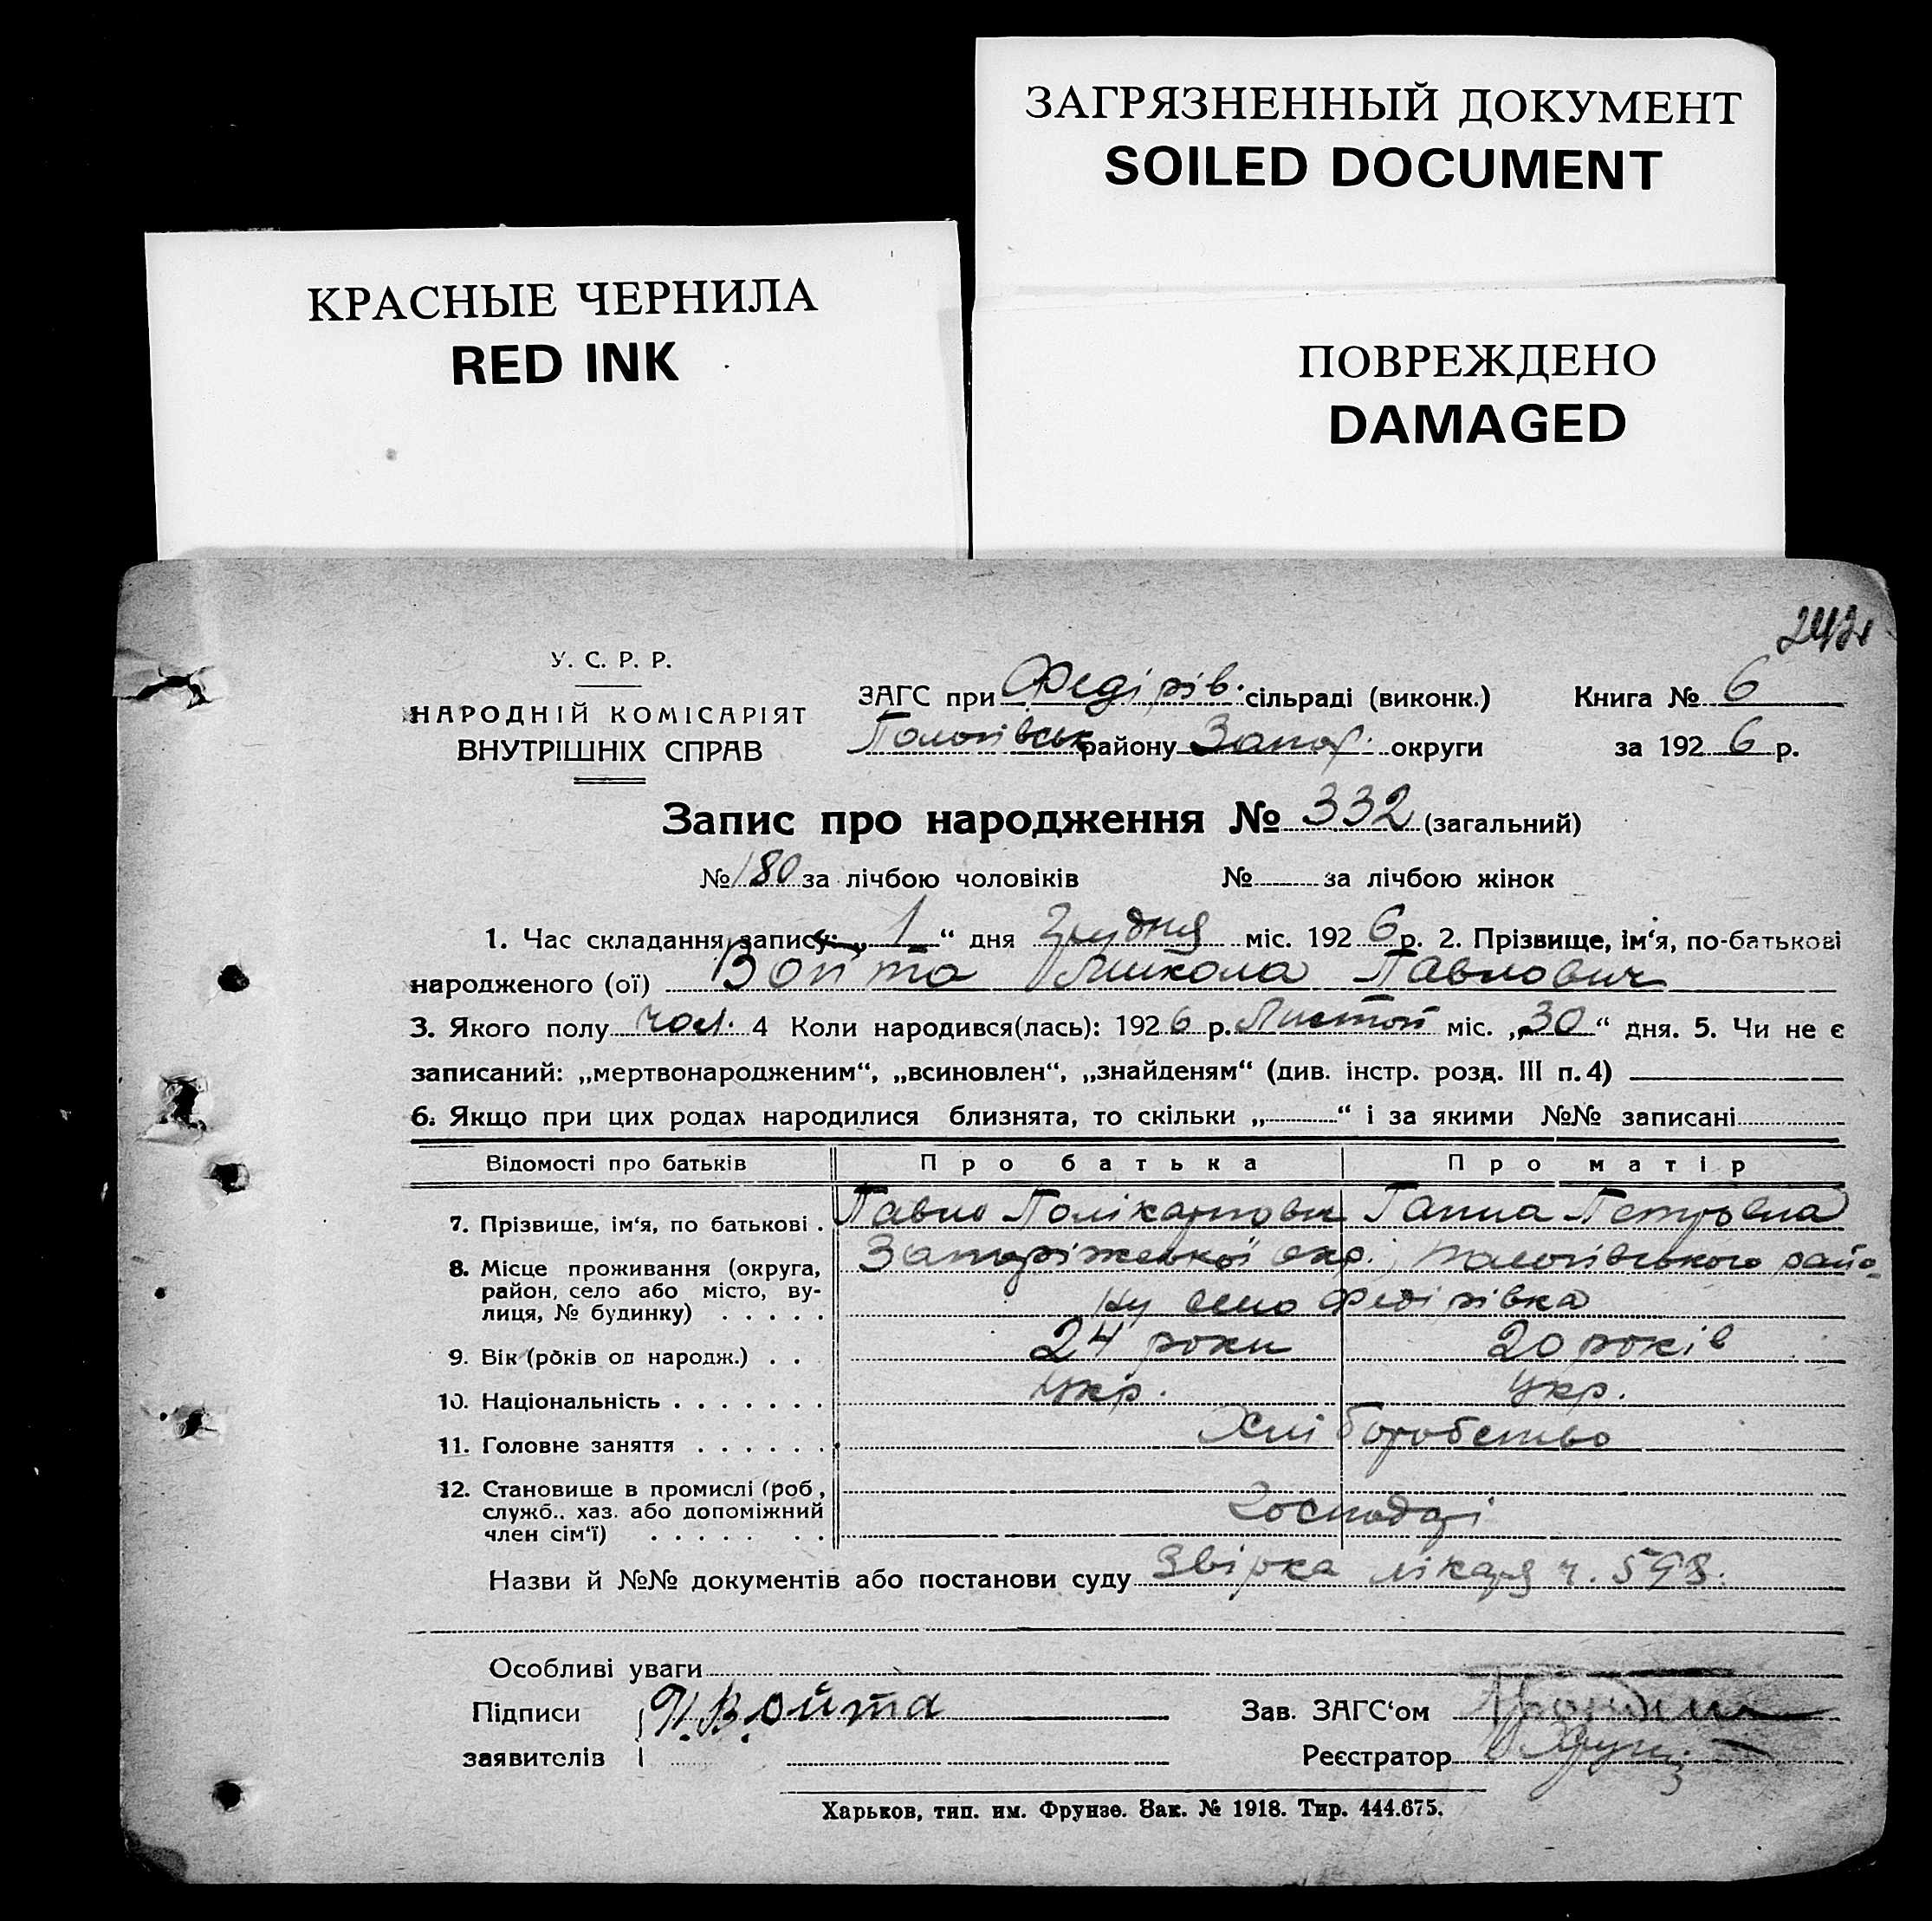 ЗАГРЯЗНЕННЫЙ ДОКУМЕНТ
SOILED DOCUMENT
КРАСНЫЕ ЧЕРНИЛА
RED INK
ПОВРЕЖДЕНО
DAMAGED
У. С. Р. Р.
НАРОДНІЙ КОМІСАРІЯТ
ВНУТРІШНІХ СПРАВ
ЗАГС при Федірів. сільраді (виконк.) Книга № 6
Пологівськ району Запор. округи за 1926 р.
Запис про народження № 332 (загальний)
№ 180 за лічбою чоловіків № за лічбою жінок
1. Час складання запису: „ 1 “ дня Грудня міс. 1926 р. 2. Прізвище, ім‘я, по-батькові
народженого (ої) Война Микола Павлович
3. Якого полу чол. 4 Коли народився(лась): 1926 р. Листоп міс. „30“ дня. 5. Чи не є
записаний: „мертвонародженим“, „всиновлен“, „знайденям“ (див. інстр. розд. III п. 4)
6. Якщо при цих родах народилися близнята, то скільки „ “ і за якими №№ записані
Відомості про батьків Про батька Про матір
7. Прізвище, ім‘я, по батькові . Павло Полікарпови Ганна Петровна
8. Місце проживання (округа, Запоріжської окр. Пологівського райо-
район, село або місто, ву-
лиця, № будинку) . . . . . ну село Федірівка
9. Вік (років од народж.) . . 24 роки 20 років
10. Національність . . . . . . . Укр. Укр.
11. Головне заняття . . . . . . Хліборобство
12. Становище в промислі (роб.,
служб.. хаз. або допоміжний Господарі
член сім‘ї) . . . . . . .
Назви й №№ документів або постанови суду Звірка лікаря ч. 593.
Особливі уваги
Підписи П. Война Зав. ЗАГС‘ом
заявителів Реєстратор
Харьков, тип. им. Фрунзе. Зак. № 1918. Тир. 444.675.